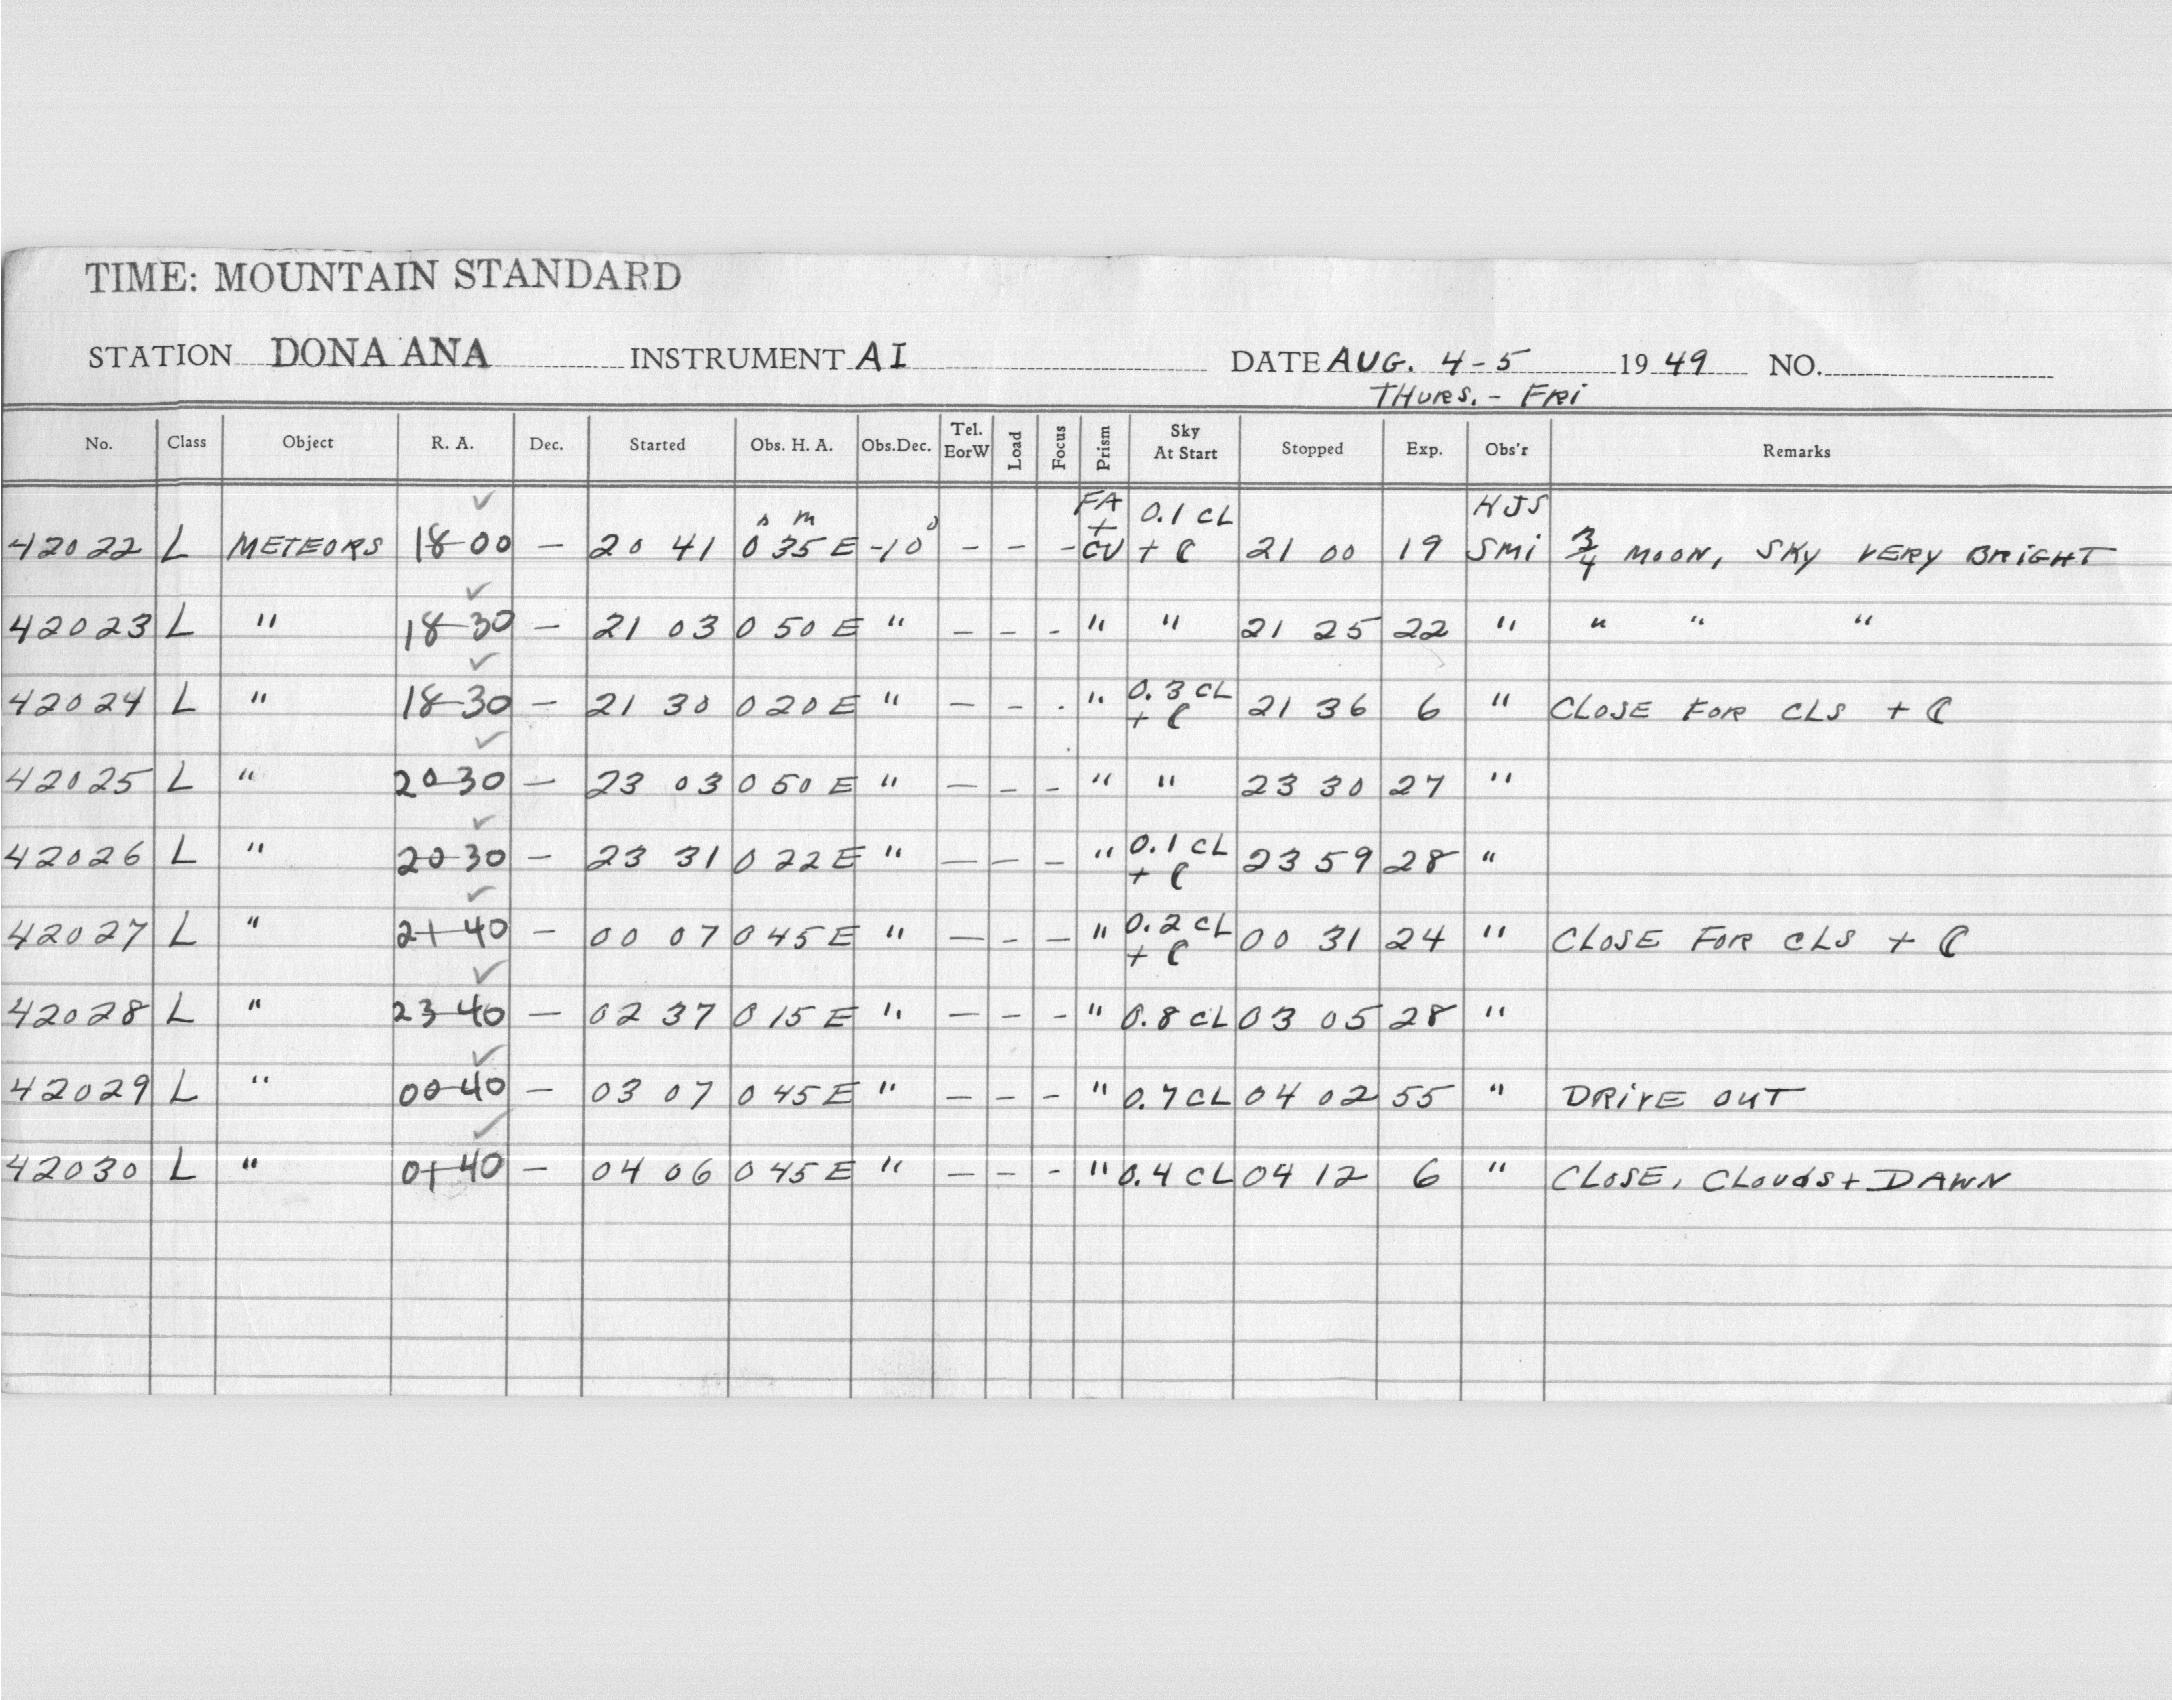 TIME: MOUNTAIN STANDARD
STATION DONA ANA INSTRUMENT AI DATE AUG. 4-5 1949 NO.
THURS. - FRI
No. Class Object R. A. Dec. Started Obs. H. A. Obs.Dec. Tel. EorW Load Focus Prism Sky At Start Stopped Exp. Obs'r Remarks
42022 L METEORS 18-00 — 20 41 0h 35m E -10° - - - FA + CU 0.1 CL + ☾ 21 00 19 HJS SMi 3/4 MOON, SKY VERY BRIGHT
42023 L " 18-30 — 21 03 0 50 E " - - - " " 21 25 22 " " " "
42024 L " 18-30 — 21 30 0 20 E " - - - " 0.3 CL + ☾ 21 36 6 " CLOSE FOR CLS + ☾
42025 L " 20-30 — 23 03 0 50 E " - - - " " 23 30 27 "
42026 L " 20-30 — 23 31 0 22 E " - - - " 0.1 CL + ☾ 23 59 28 "
42027 L " 21-40 — 00 07 0 45 E " - - - " 0.2 CL + ☾ 00 31 24 " CLOSE FOR CLS + ☾
42028 L " 23-40 — 02 37 0 15 E " - - - " 0.8 CL 03 05 28 "
42029 L " 00-40 — 03 07 0 45 E " - - - " 0.7 CL 04 02 55 " DRIVE OUT
42030 L " 01-40 — 04 06 0 45 E " - - - " 0.4 CL 04 12 6 " CLOSE, CLOUdS + DAWN